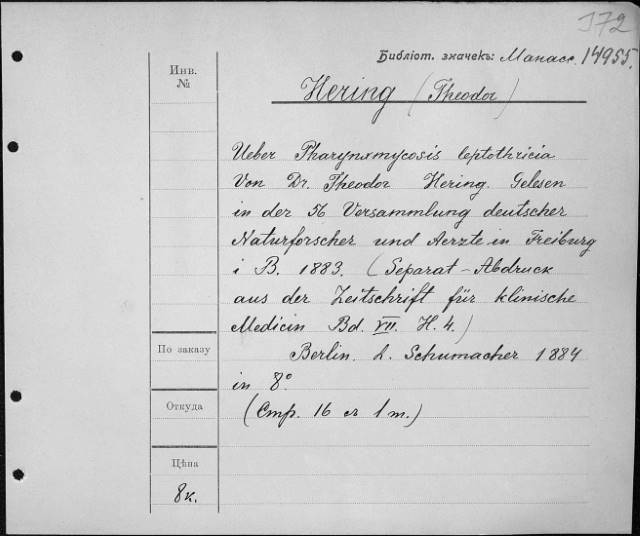 172
Библіот. значекъ: Манасс. 14955.
Инв.
№
Hering (Theodor)
Ueber Pharynxmycosis leptothricia
Von Dr. Theodor Hering. Gelesen
in der 56 Versammlung deutscher
Naturforscher und Aerzte in Freiburg
i B. 1883. (Separat-Abdruck
aus der Zeitschrift für klinische
Medicin Bd. VII. H. 4.)
Berlin. L. Schumacher 1884
in 8°
(Стр. 16 съ 1 т.)
По заказу
Откуда
Цѣна
8к.